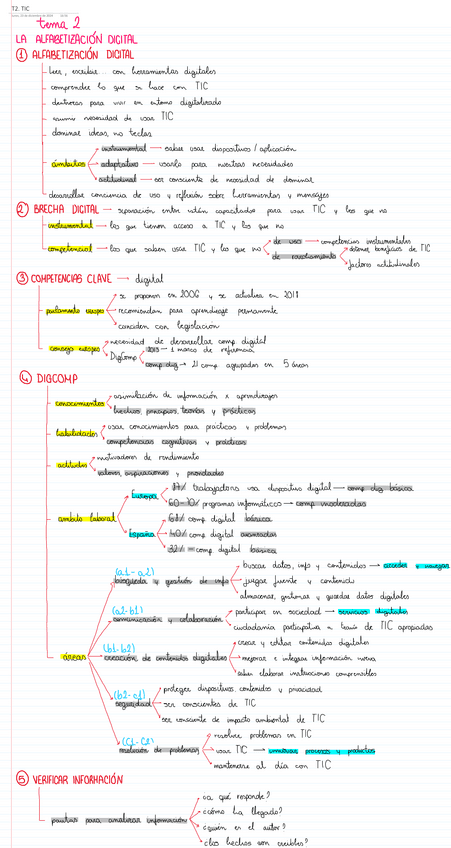 T2. TIC
tema 2
LA ALFABETIZACIÓN DIGITAL
① ALFABETIZACIÓN DIGITAL
leer, escribir... con herramientas digitales
comprender lo que se hace con TIC
destrezas para vivir en entorno digitalizado
asumir necesidad de usar TIC
dominar ideas, no teclas
ámbitos
instrumental → saber usar dispositivos / aplicación
adaptativo → usarlo para nuestras necesidades
actitudinal → ser consciente de necesidad de dominar
desarrollar conciencia de uso y reflexión sobre herramientas y mensajes
② BRECHA DIGITAL → separación entre están capacitados para usar TIC y los que no
instrumental → los que tienen acceso a TIC y los que no
competencial → los que saben usar TIC y los que no
de uso → competencias instrumentales
de
obtener beneficios de TIC
factores actitudinales
③ COMPETENCIAS CLAVE → digital
parlamento europeo
se proponen en 2006 y se actualiza en 2018
recomiendan para aprendizaje permanente
coinciden con legislación
consejo europeo
necesidad de desarrollar comp digital
DigComp
2013 → 1 marco de referencia
comp dig → 21 comp agrupadas en 5 áreas
④ DIGCOMP
conocimientos
asimilación de información x aprendizajes
hechos, principios, teorías y prácticas
habilidades
usar conocimientos para prácticas y problemas
competencias cognitivas y prácticas
actitudes
motivadores de rendimiento
valores, aspiraciones y prioridades
ámbito laboral
Europa
trabajadores usa dispositivo digital → comp dig básica
60-70% programas informáticos → comp moderadas
España
comp digital básica
40% comp digital avanzadas
32% = comp digital
áreas
(a1-a2)
búsqueda y gestión de info
buscar datos, info y contenidos → acceder y navegar
juzgar fuente y contenido
almacenar, gestionar y guardar datos digitales
(a2-b1)
comunicación y colaboración
participar en sociedad → servicios digitales
ciudadanía participativa a través de TIC apropiadas
(b1-b2)
creación de contenidos digitales
crear y editar contenidos digitales
mejorar e integrar información nueva
saber elaborar instrucciones comprensibles
(b2-c1)
seguridad
proteger dispositivos, contenidos y privacidad
ser conscientes de TIC
ser consciente de impacto ambiental de TIC
(C1-C2)
resolución de problemas
resolver problemas en TIC
usar TIC → innovar procesos y productos
mantenerse al día con TIC
⑤ VERIFICAR INFORMACIÓN
pautas para analizar información
¿a qué responde?
¿cómo ha llegado?
¿quién es el autor?
¿los hechos son creíbles?